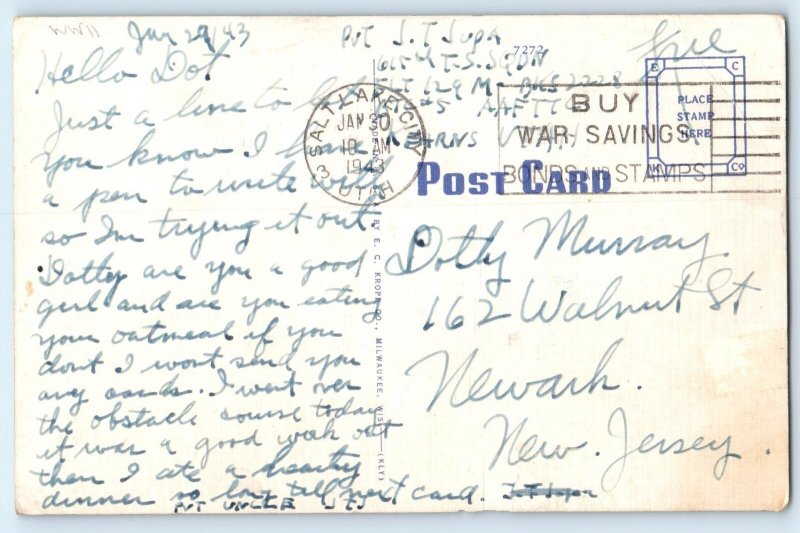 Jan 29/43
Hello Dot
Just a line to let
you know I have
a pen to write with
so Im trying it out.
Dotty are you a good
girl and are you eating
your oatmeal if you
dont I wont send you
any cards. I went over
the obstacle course today
it was a good work out
then I ate a hearty
dinner so long till next card.
Pvt UNCLE STJ
Pvt S.T. Jupa
615th T.S. SQDN
FLT 129 M- BKS 2228
#5 AAFTTC
KEARNS UTAH
Free
7272
SALT LAKE CITY
JAN 30
10 AM
1943
3 UTAH
BUY
WAR SAVINGS
BONDS AND STAMPS
E C
PLACE
STAMP
HERE
K Co
POST CARD
BY E. C. KROPP CO., MILWAUKEE, WIS. (KLY)
Dotty Murray
162 Walnut St
Newark.
New. Jersey.